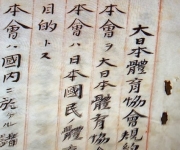 大日本體育協會規約
本會ヲ大日本體育協
本會ハ日本國民體育
目的トス
本會ハ國内ニ於ケル諸